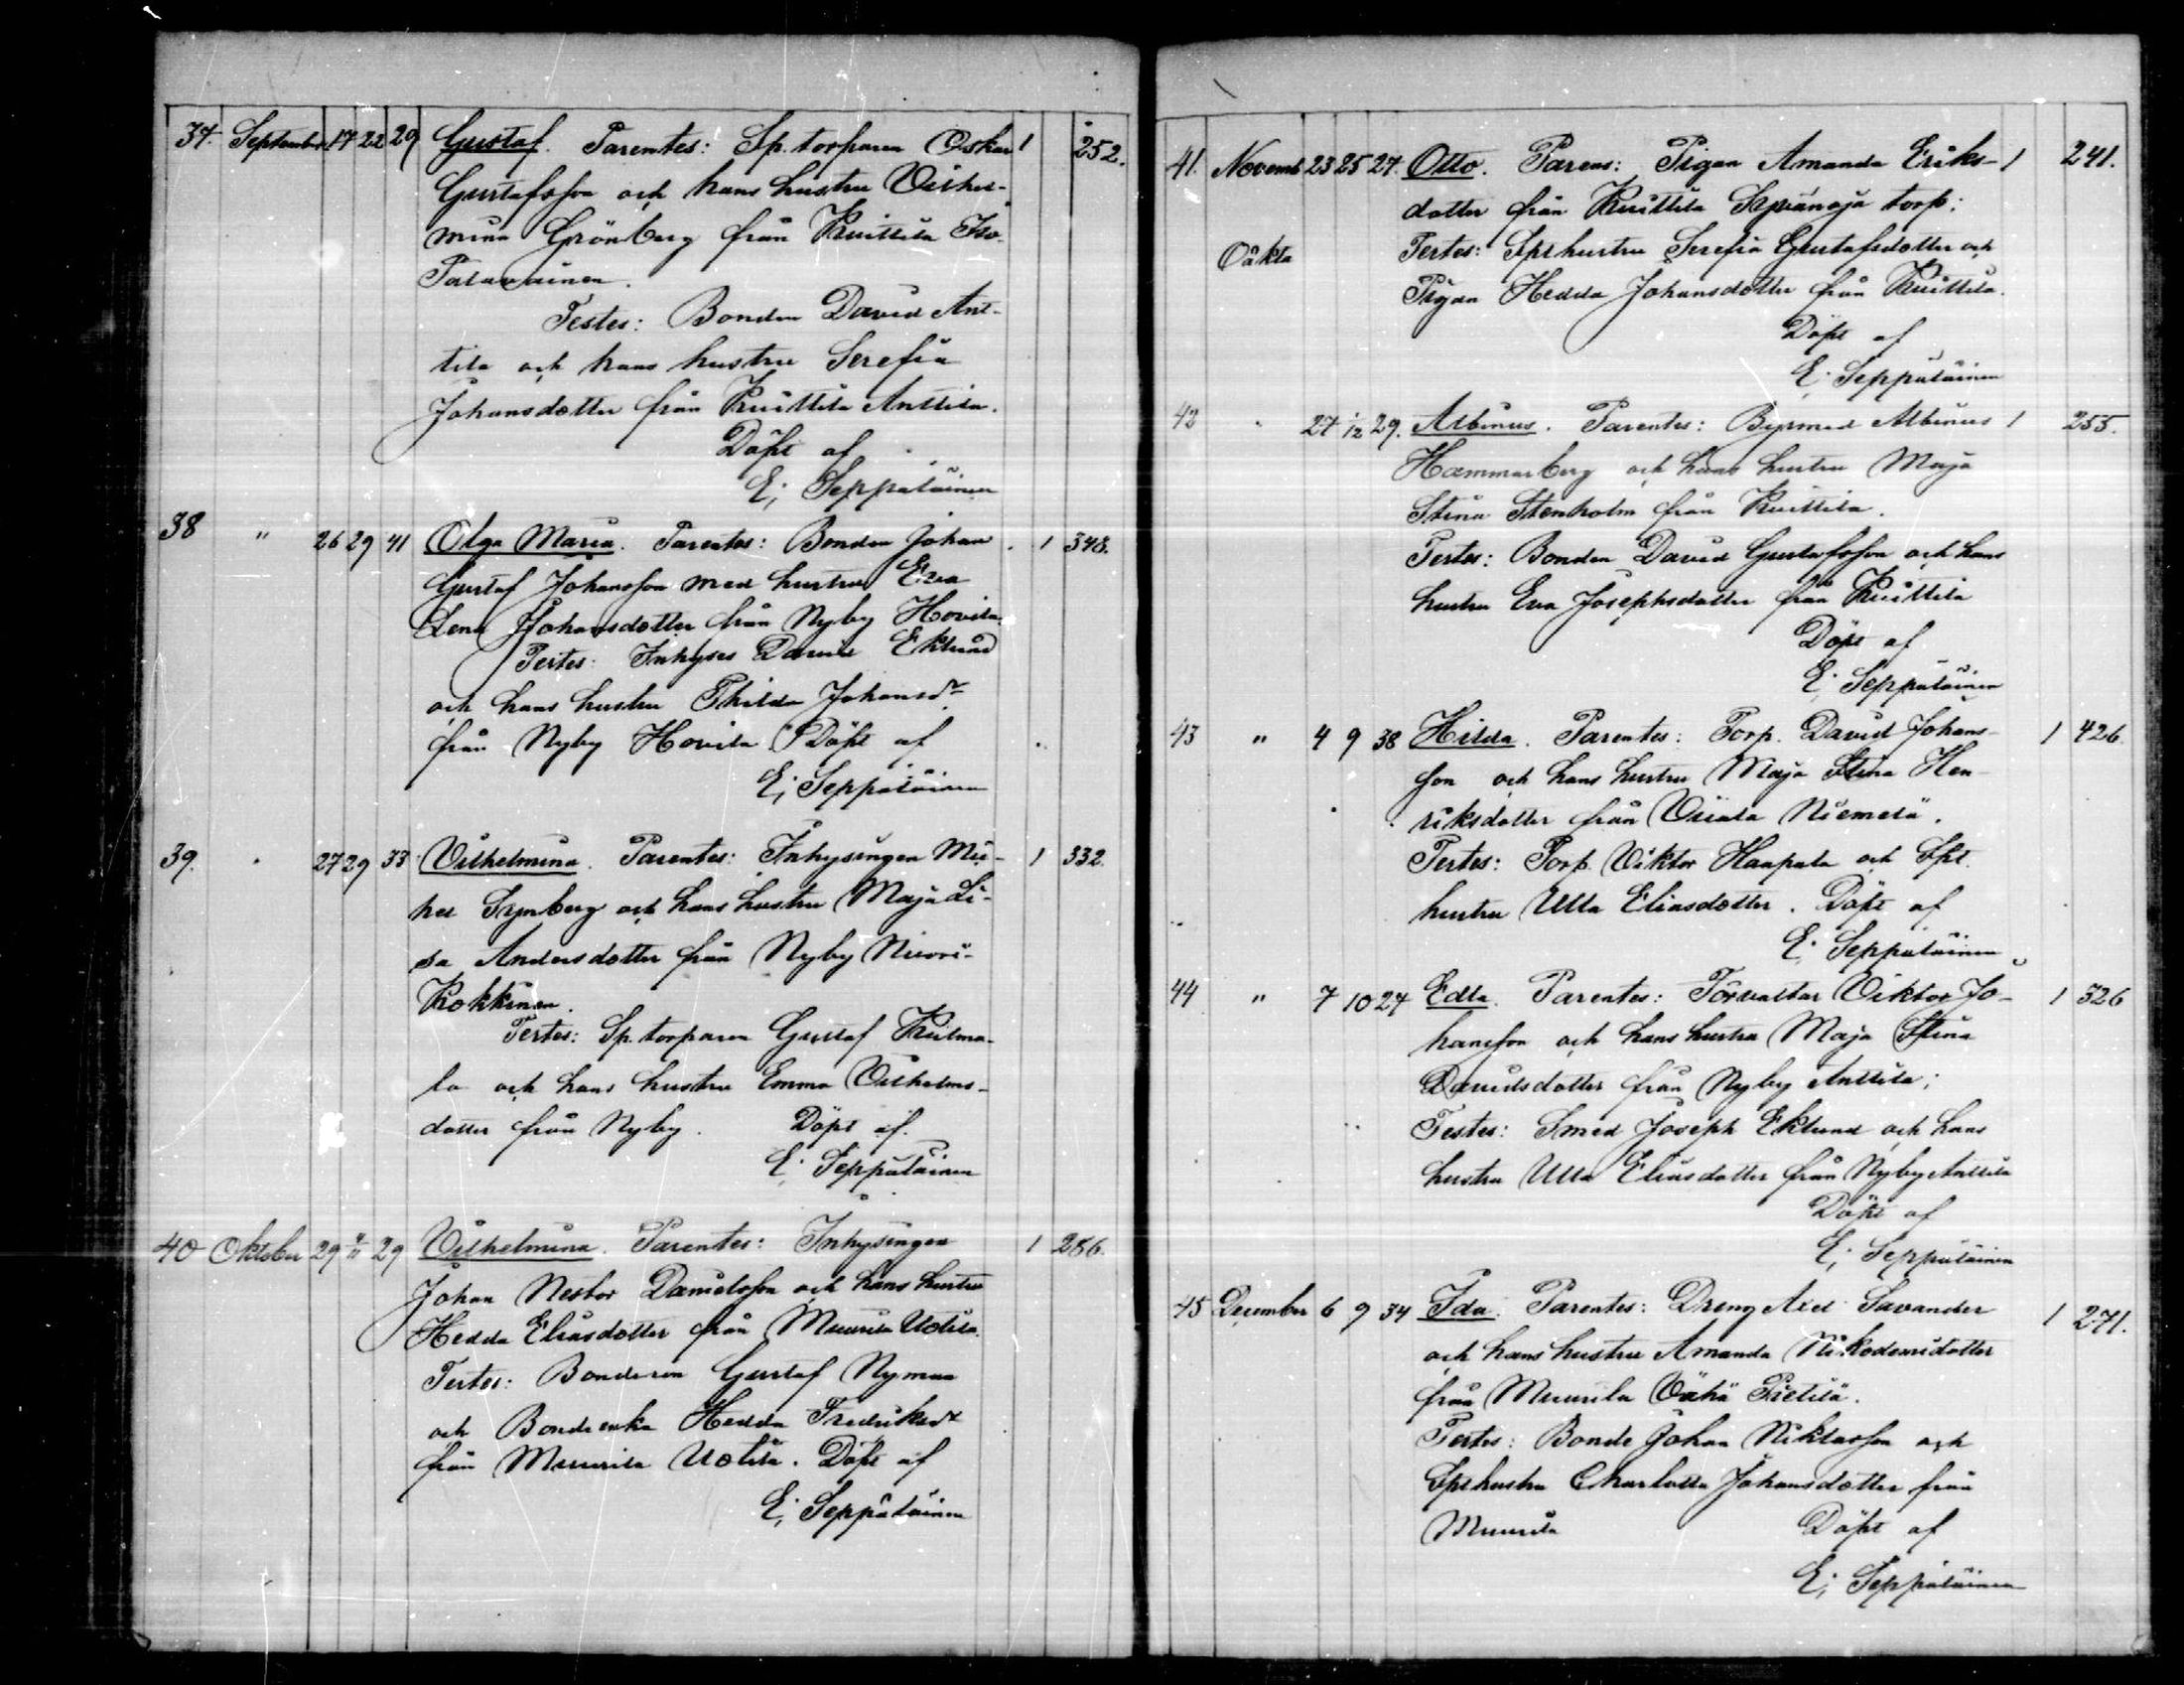 37. September 17 22 29 Gustaf. Parentes: Sp. torparen Oskar 1 252.
Gustafsson och hans hustru Vilhel-
mina Grönberg från Kuittila Iso-
Palavainen.
Testes: Bonden David Ant-
tila och hans hustru Serefia
Johansdotter från Kuittila Anttila.
Döpt af
E. Seppäläinen
38 " 26 29 41 Olga Maria. Parentes: Bonden Johan 1 348.
Gustaf Johansson med hustru Eva
Lena Johansdotter från Nyby Hovila.
Testes: Inhyses Daniel Eklund
och hans hustru Thilda Johansdr
från Nyby Hovila. Döpt af
E. Seppäläinen
39. " 27 29 33 Vilhelmina. Parentes: Inhysingen Mi-
1 332.
hel Synberg och hans hustru Maja Li-
sa Andersdotter från Nyby Nuori-
Kokkinen.
Testes: Sp. torparen Gustaf Kulma-
la och hans hustru Emma Vilhelms-
dotter från Nyby. Döpt af.
E. Seppäläinen
40 Oktober 29 4/11 29 Vilhelmina. Parentes: Inhysingen 1 286.
Johan Nestor Danielsson och hans hustru
Hedda Eliasdotter från Muurila Uotila.
Testes: Bondeson Gustaf Nyman
och Bondeenka Hedda Fredriksdr
från Muurila Uotila. Döpt af
E. Seppäläinen
41. Novemb 23 25 27. Otto. Parens: Pigan Amanda Eriks- 1 241.
dotter från Kuittila torp;
Oäkta Testes: Spt hustru Serefia Gustafsdotter och
Pigan Hedda Johansdotter från Kuittila.
Döpt af
E. Seppäläinen
42 " 27 1/12 29. Albinus. Parentes: Bysmed Albinus 1 255.
Hammarberg och hans hustru Maja
Stina Stenholm från Kuittila.
Testes: Bonden David Gustafsson och hans
hustru Eva Josephsdotter från Kuittila
Döpt af
E. Seppäläinen
43 " 4 9 38 Hilda. Parentes: Torp. David Johans- 1 426.
son och hans hustru Maja Stina Hen-
riksdotter från Viiala Niemelä.
Testes: Torp. Viktor Haapala och Spt.
hustru Ulla Eliasdotter. Döpt af
E. Seppäläinen
44 " 7 10 27 Edla. Parentes: Förvaltar Viktor Jo- 1 326
hansson och hans hustru Maja Stina
Davidsdotter från Nyby Anttila;
Testes: Smed Joseph Eklund och hans
hustru Ulla Eliasdotter från Nyby Anttila
Döpt af
E. Seppäläinen
45 December 6 9 34 Ida. Parentes: Dreng Axel Savander 1 271.
och hans hustru Amanda Nikodemidotter
från Muurila Vähä Pietilä.
Testes: Bonde Johan Niklasson och
Spt hustru Charlotta Johansdotter från
Muurila Döpt af
E. Seppäläinen